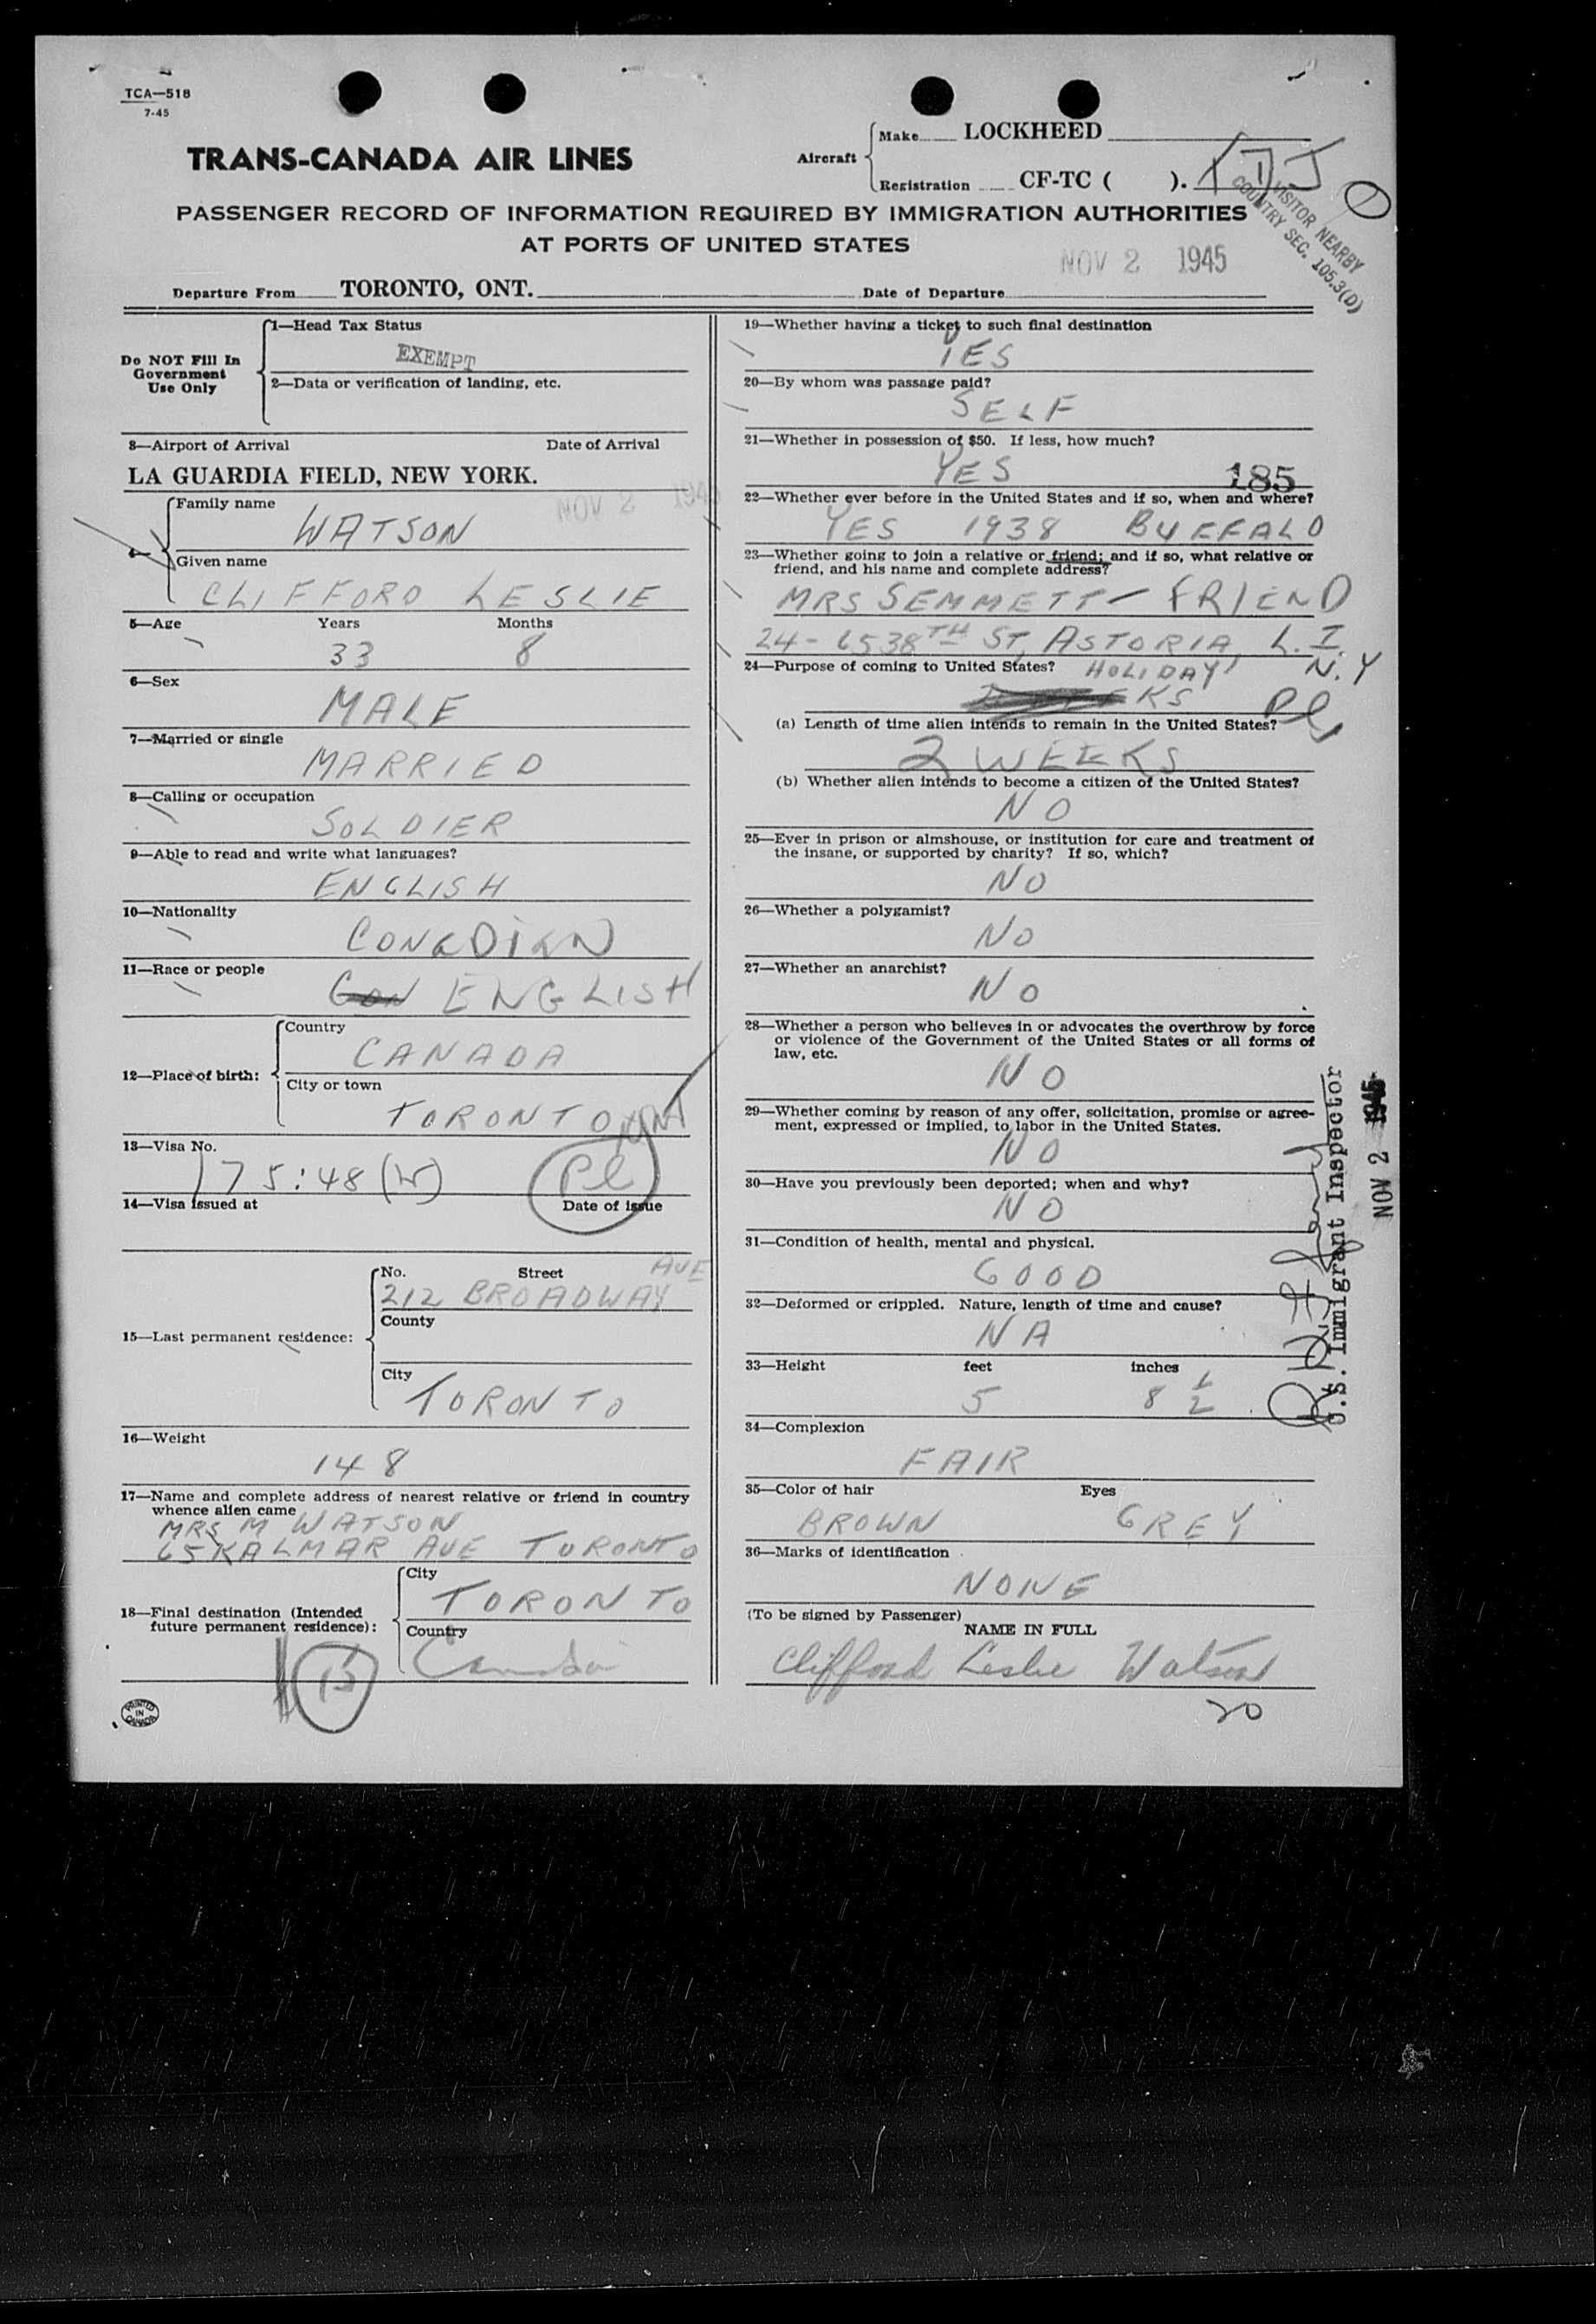 TCA—518
7-45
TRANS-CANADA AIR LINES
Aircraft
Make LOCKHEED
Registration CF-TC ( ).
VISITOR NEARBY
COUNTRY SEC. 105.3(D)
PASSENGER RECORD OF INFORMATION REQUIRED BY IMMIGRATION AUTHORITIES
AT PORTS OF UNITED STATES
NOV 2 1945
Departure From TORONTO, ONT. Date of Departure
Do NOT Fill In
Government
Use Only
1—Head Tax Status
EXEMPT
2—Data or verification of landing, etc.
3—Airport of Arrival Date of Arrival
LA GUARDIA FIELD, NEW YORK.
NOV 2 194
Family name
WATSON
4—
Given name
CLIFFORD LESLIE
5—Age Years Months
33 8
6—Sex
MALE
7—Married or single
MARRIED
8—Calling or occupation
SOLDIER
9—Able to read and write what languages?
ENGLISH
10—Nationality
CONADIAN
11—Race or people
ENGLISH
12—Place of birth:
Country
CANADA
City or town
TORONTO ONT
13—Visa No.
175:48 (W)
14—Visa issued at Date of issue
15—Last permanent residence:
No. Street AVE
212 BROADWAY
County
City
TORONTO
16—Weight
148
17—Name and complete address of nearest relative or friend in country
whence alien came
MRS M WATSON
65 KALMAR AVE TORONTO
18—Final destination (Intended
future permanent residence):
City
TORONTO
Country
Canada
PRINTED
IN
CANADA
19—Whether having a ticket to such final destination
YES
20—By whom was passage paid?
SELF
21—Whether in possession of $50. If less, how much?
YES 185
22—Whether ever before in the United States and if so, when and where?
YES 1938 BUFFALO
23—Whether going to join a relative or friend; and if so, what relative or
friend, and his name and complete address?
MRS SEMMETT — FRIEND
24-6538TH ST, ASTORIA, L.I.
N.Y
24—Purpose of coming to United States? HOLIDAY
KS
(a) Length of time alien intends to remain in the United States?
2 WEEKS
(b) Whether alien intends to become a citizen of the United States?
NO
25—Ever in prison or almshouse, or institution for care and treatment of
the insane, or supported by charity? If so, which?
NO
26—Whether a polygamist?
NO
27—Whether an anarchist?
NO
28—Whether a person who believes in or advocates the overthrow by force
or violence of the Government of the United States or all forms of
law, etc.
NO
29—Whether coming by reason of any offer, solicitation, promise or agree-
ment, expressed or implied, to labor in the United States.
NO
30—Have you previously been deported; when and why?
NO
31—Condition of health, mental and physical.
GOOD
32—Deformed or crippled. Nature, length of time and cause?
NA
33—Height feet inches
5 8 1/2
34—Complexion
FAIR
35—Color of hair Eyes
BROWN GREY
36—Marks of identification
NONE
(To be signed by Passenger)
NAME IN FULL
Clifford Leslie Watson
20
U.S. Immigrant Inspector
NOV 2 1945